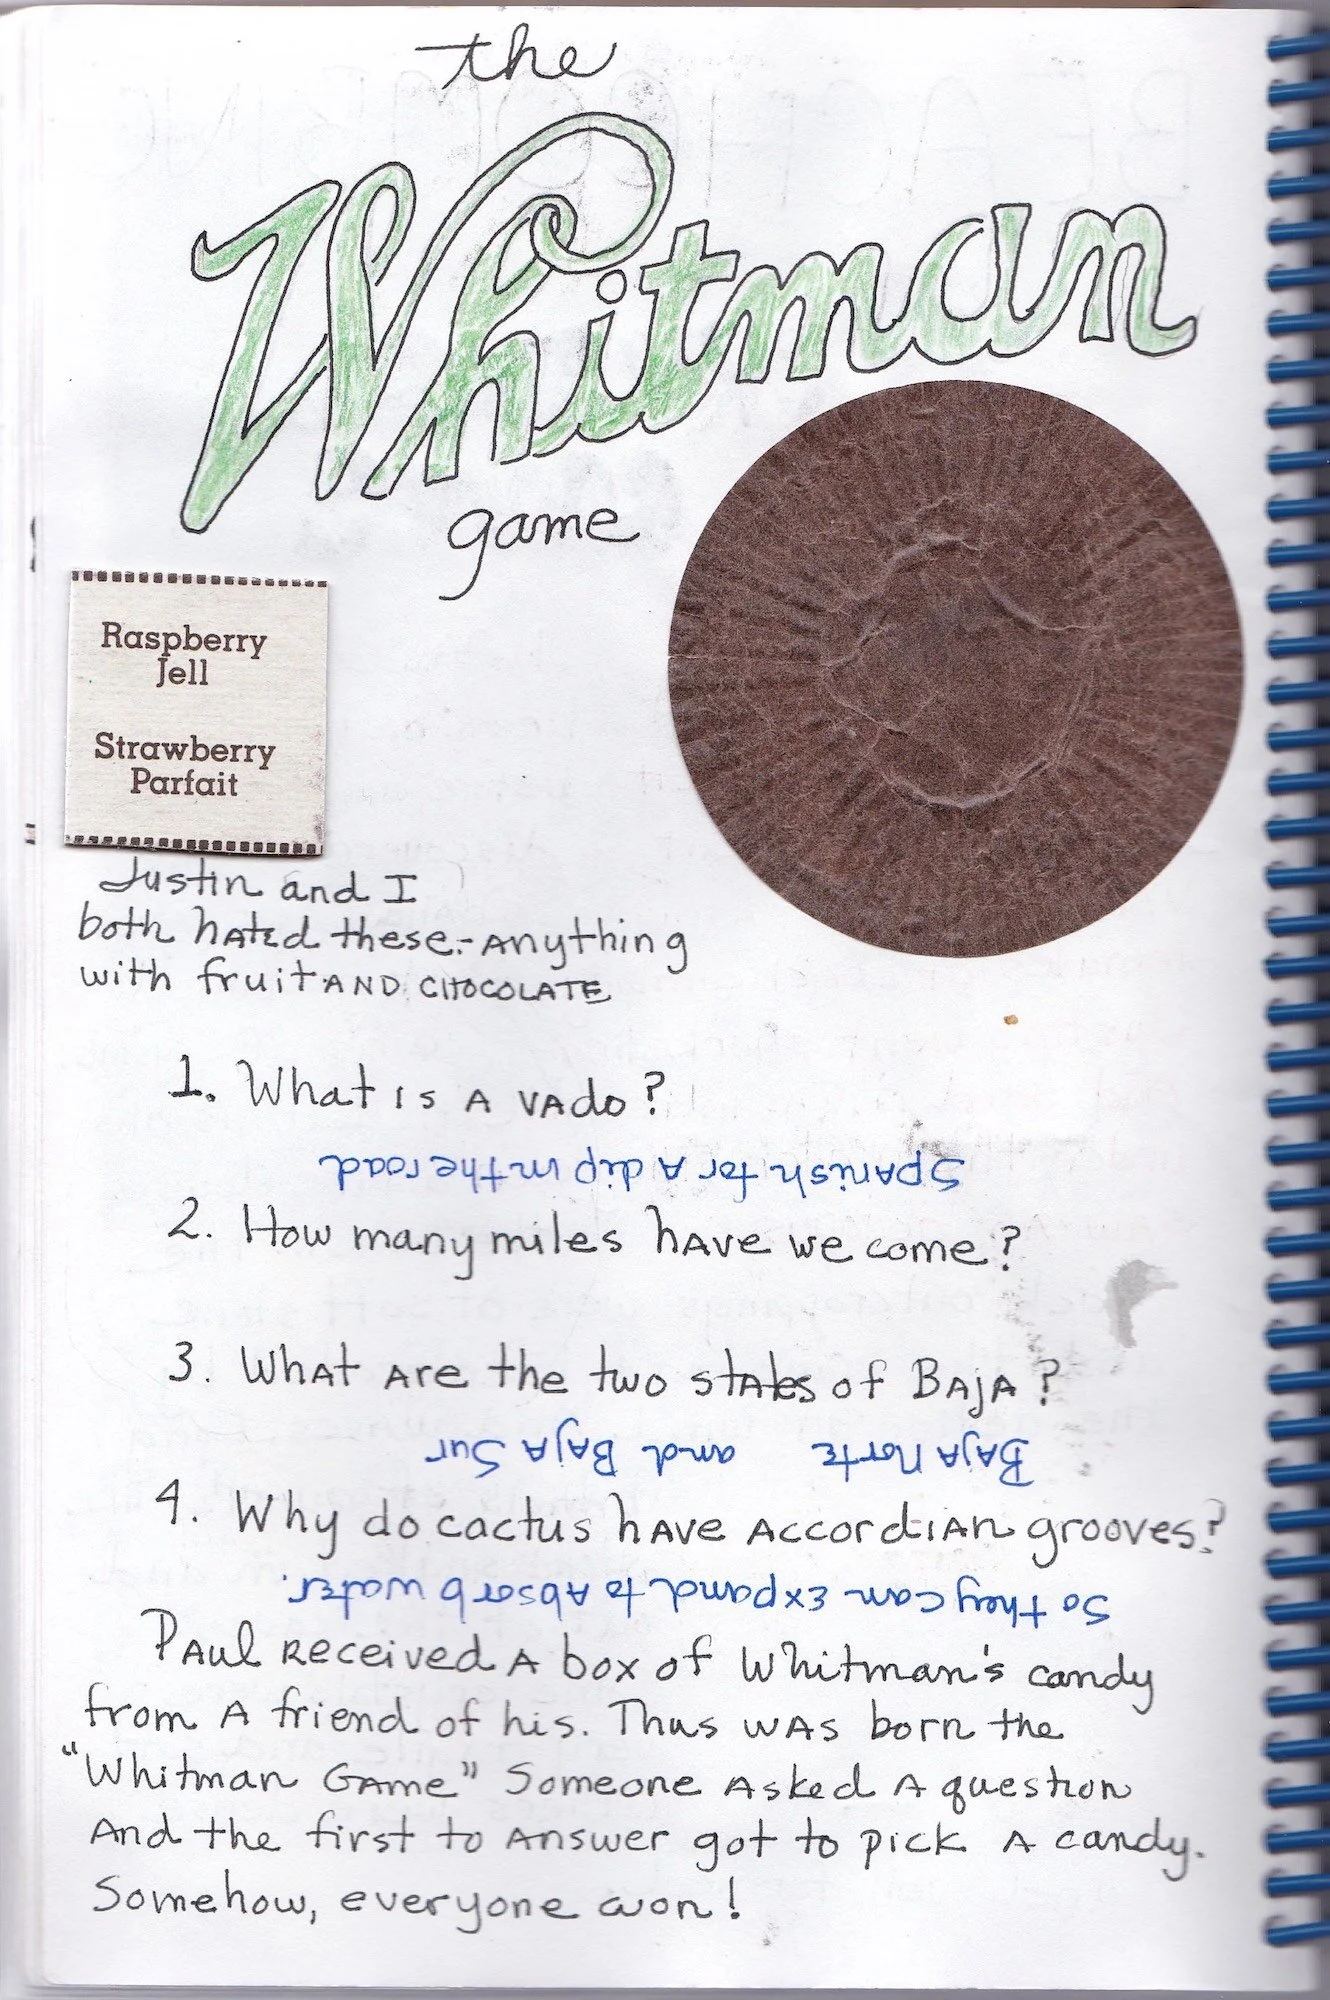 the
Whitman
game
Raspberry
Jell
Strawberry
Parfait
Justin and I
both hated these - anything
with fruit AND CHOCOLATE
1. What is A vado?
Spanish for A dip in the road
2. How many miles have we come?
3. What Are the two states of BAJA?
BAJA Norte and BAJA Sur
4. Why do cactus have Accordian grooves?
So they can Expand to Absorb water.
Paul received A box of Whitman's candy
from A friend of his. Thus was born the
"Whitman Game" Someone Asked A question
And the first to Answer got to pick A candy.
Somehow, everyone won!